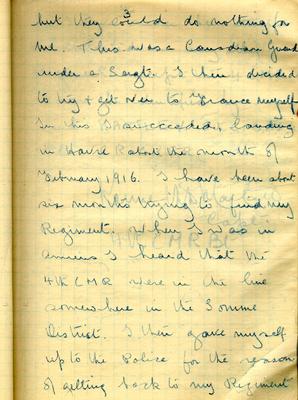 3
but they could do nothing for
me. This was a Canadian Guard
under a Sergt. I then decided
to try & get over to France myself
In this I succeeded, landing
in Havre about the month of
February 1916. I have been about
six months trying to find my
Regiment. When I was in
Amiens I heard that the
4th CMR were in the line
somewhere in the Somme
District. I then gave myself
up to the Police for the reason
of getting back to my Regiment